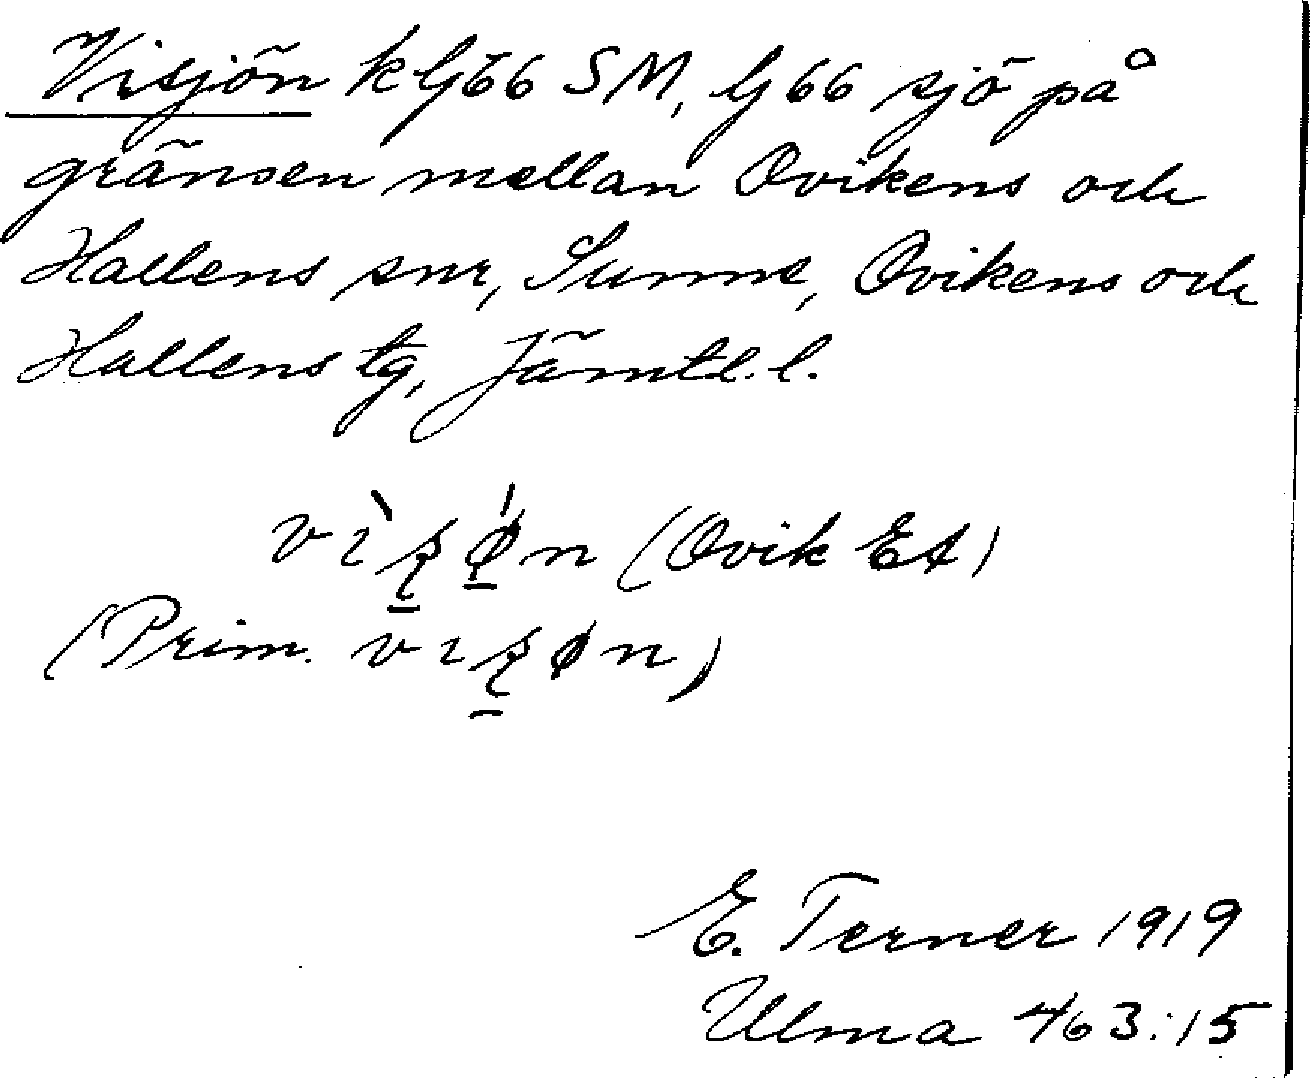 Visjön k G66 SM, G 66 sjö på
gränsen mellan Ovikens och
Hallens snr, Sunne, Ovikens och
Hallens tg, Jämtl. l.
(Ovik Et)
(Prim.
E. Terner 1919
Ulma 463:15